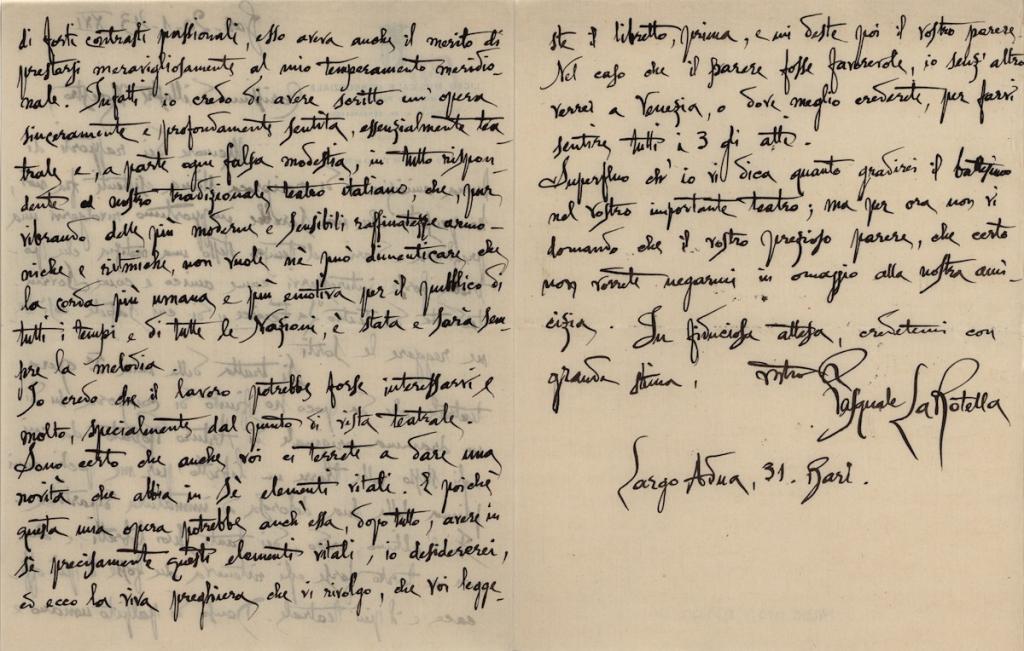 di forti contrasti passionali, esso aveva anche il merito di
prestarsi meravigliosamente al mio temperamento meridio-
nale. Infatti io credo di avere scritto un'opera
sinceramente e profondamente sentita, essenzialmente tea
trale e, a parte ogni falsa modestia, in tutto rispon-
dente al nostro tradizionale teatro italiano, che, pur
vibrando delle più moderne e sensibili raffinatezze armo-
niche e ritmiche, non vuole nè può dimenticare che
la corda più umana e più emotiva per il pubblico di
tutti i tempi e di tutte le Nazioni, è stata e sarà sem-
pre la melodia.
Io credo che il lavoro potrebbe forse interessarvi e
molto, specialmente dal punto di vista teatrale.
Sono certo che anche voi ci terrete a dare una
novità che abbia in sè elementi vitali. E poichè
questa mia opera potrebbe anch'essa, dopo tutto, avere in
sè precisamente questi elementi vitali, io desidererei,
ed ecco la viva preghiera che vi rivolgo, che voi legge-
ste il libretto, prima, e mi deste poi il vostro parere.
Nel caso che il parere fosse favorevole, io senz'altro
verrei a Venezia, o dove meglio crederete, per farvi
sentire tutti i 3 gli atti.
Superfluo ch'io vi dica quanto gradirei il battesimo
nel vostro importante teatro; ma per ora non vi
domando che il vostro prezioso parere, che certo
non vorrete negarmi in omaggio alla nostra ami-
cizia. In fiduciosa attesa, credetemi con
grande stima, vostro
Pasquale La Rotella
Largo Adua, 31. Bari.